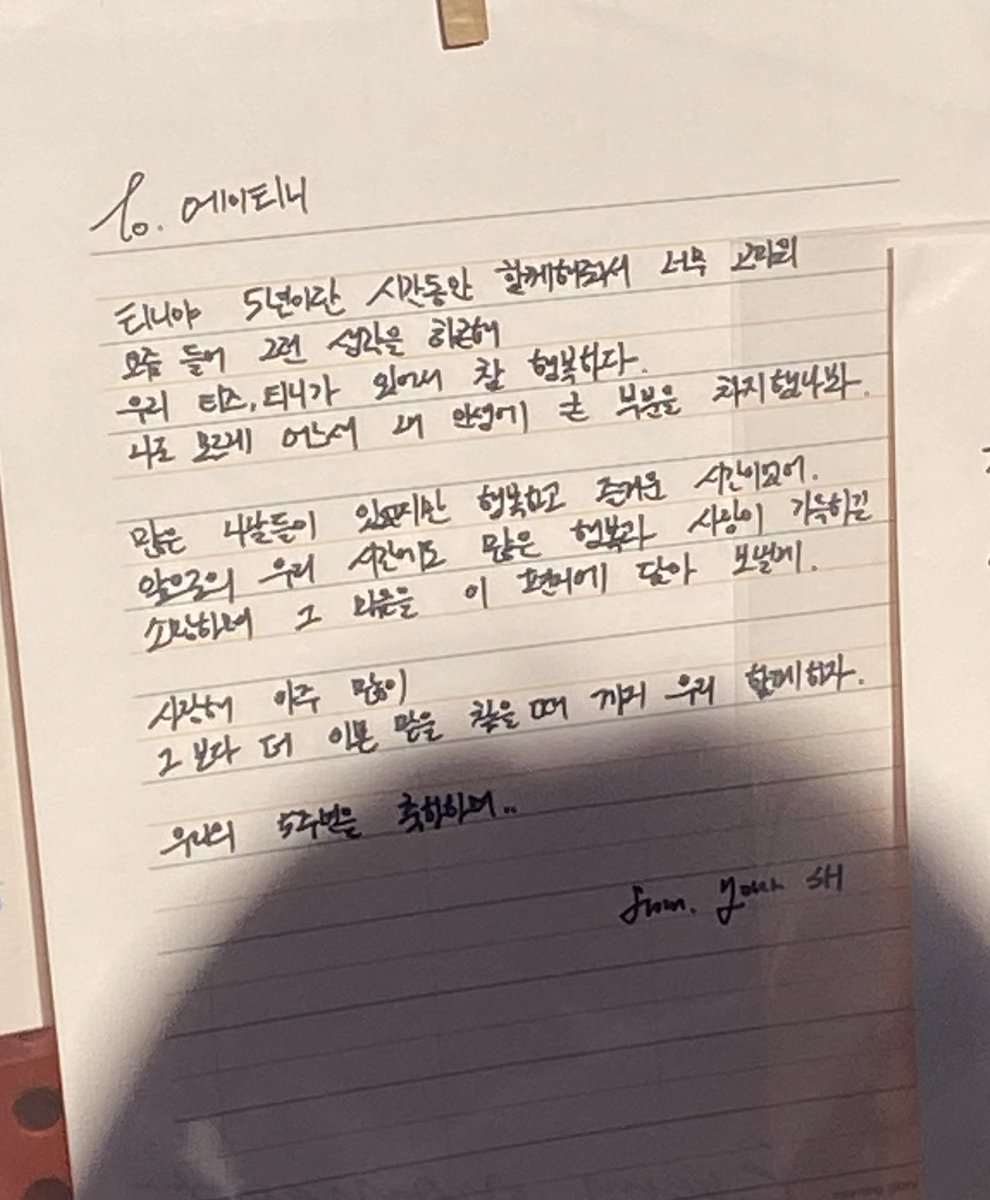 To. 에이티니
티니야 5년이란 시간동안 함께해줘서 너무 고마워
요즘 들어 그런 생각을 하곤해
우리 티즈, 티니가 있어서 참 행복하다.
나도 모르게 어느새 내 인생에 큰 부분을 차지했나봐.
많은 나날들이 있었지만 행복하고 즐거운 시간이었어.
앞으로의 우리 시간에도 많은 행복과 사랑이 가득하길
소망하며 그 마음을 이 편지에 담아 보낼게.
사랑해 아주 많이
그 보다 더 이쁜 말을 찾을 때 까지 우리 함께하자.
우리의 5주년을 축하하며..
from. your SH